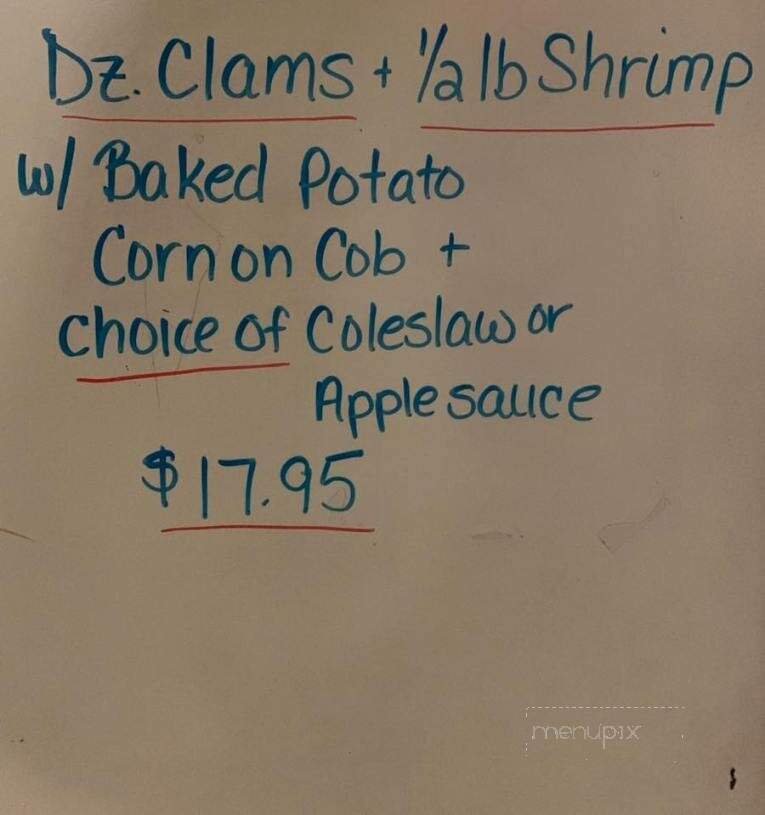 Dz. Clams + 1/2 lb Shrimp
w/ Baked Potato
Corn on Cob +
choice of Coleslaw or
Applesauce
$17.95
menupix